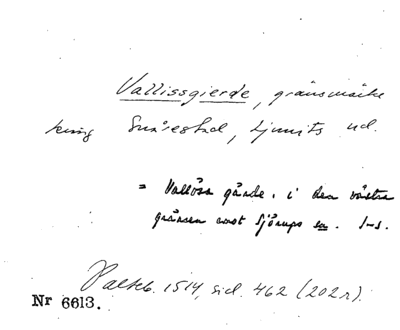 Vallissgierde, gränsmärke
kring Snårestad, Ljunits hd.
= Vallösa gärde, i den västra
gränsen mot Sjörups sn. I-s.
Palteb. 1514, sid. 462 (202r).
Nr 6613.